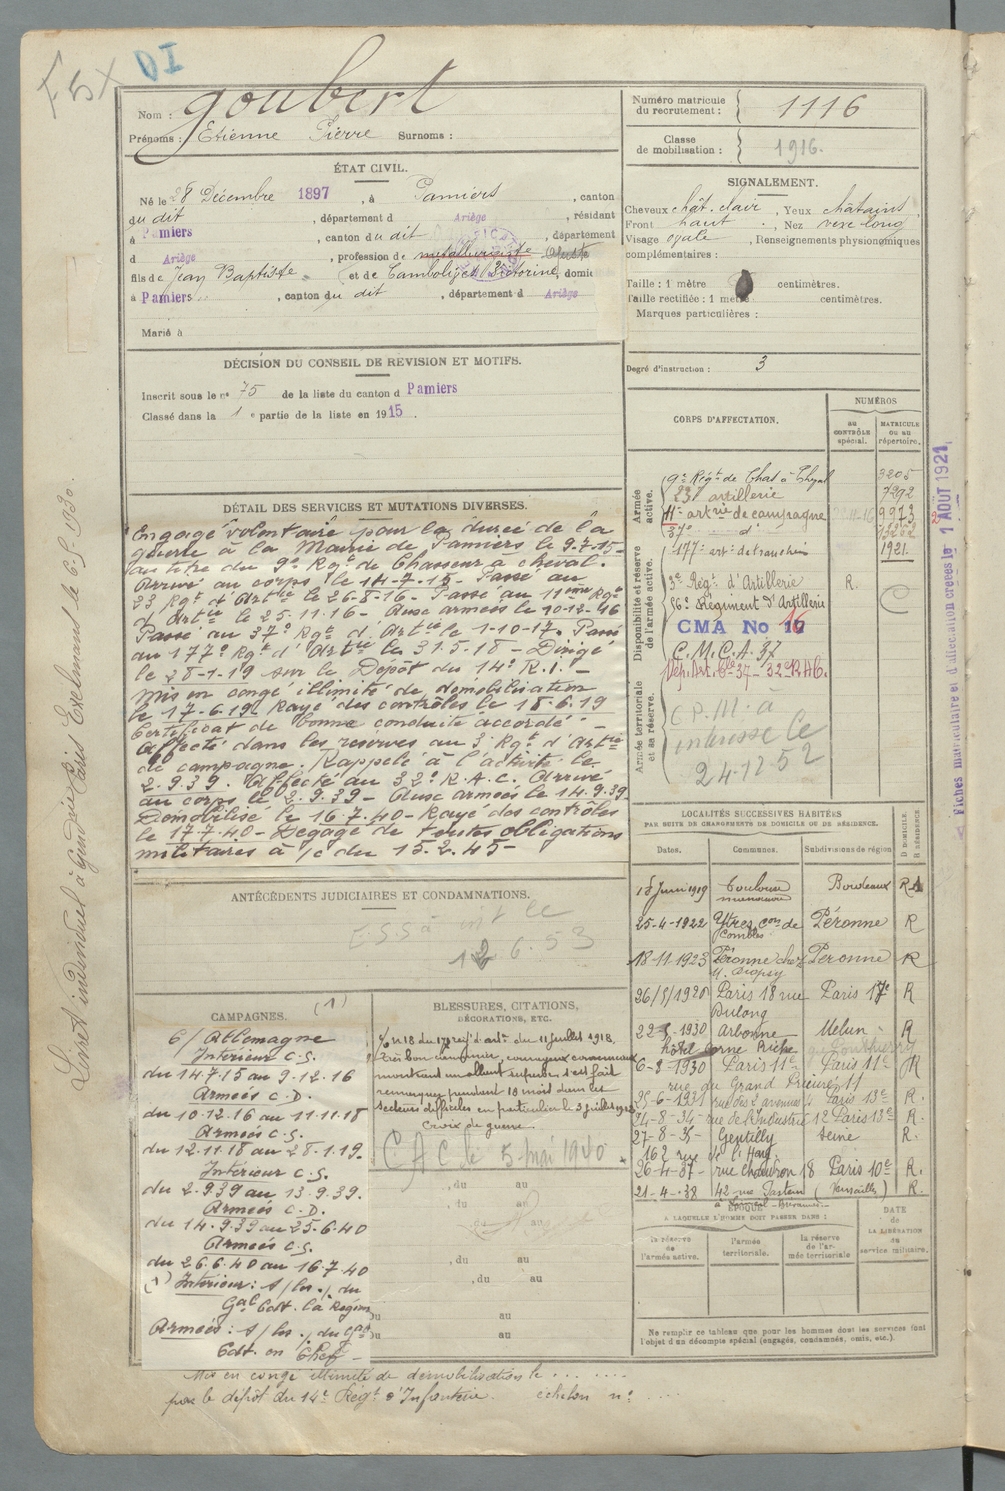 DI
Nom : Goubert
Prénoms : Etienne Pierre Surnoms :
Numéro matricule du recrutement : 1116
Classe de mobilisation : 1916.
ÉTAT CIVIL.
Né le 28 Décembre 1897, à Pamiers, canton
du dit, département d Ariège, résidant
à Pamiers, canton du dit, département
d Ariège, profession de métallurgiste
fils de Jean Baptiste et de Victorine, domi
à Pamiers, canton du dit, département d Ariège
Marié à
SIGNALEMENT.
Cheveux chât. clair, Yeux châtains,
Front haut, Nez vexe long
Visage ovale, Renseignements physionomiques
complémentaires :
Taille : 1 mètre centimètres.
Taille rectifiée : 1 mètre centimètres.
Marques particulières :
Degré d'instruction : 3
DÉCISION DU CONSEIL DE RÉVISION ET MOTIFS.
Inscrit sous le n° 75 de la liste du canton d Pamiers
Classé dans la 1e partie de la liste en 1915.
DÉTAIL DES SERVICES ET MUTATIONS DIVERSES.
Engagé volontaire pour la durée de la
guerre à la Mairie de Pamiers le 9-7-15-
au titre du 9e Rgt de Chasseurs à cheval.
Arrivé au corps le 14-7-15- Passé au
23 Rgt d'Artie le 26-8-16- Passé au 11ème Rgt
d'Artie le 25-11-16- Aux armées le 10-12-16
Passé au 37e Rgt d'Artie le 1-10-17. Passé
au 177e Rgt d'Artie le 31.5.18- Dirigé
le 28-1-19 sur le Dépôt du 14e R.I.-
Mis en congé illimité de démobilisation
le 17-6-19- Rayé des contrôles le 18.6.19
Certificat de bonne conduite accordé-
Affecté dans les reserves au 3e Rgt d'Artie
de campagne. Rappelé à l'activité le
2.9.39. Affecté au 32e R.A.C. Arrivé
au corps le 2.9.39- Aux armées le 14.9.39
Démobilisé le 16.7.40- Rayé des contrôles
le 17.7.40- Dégagé de toutes obligations
militaires à /c du 15.2.45-
CORPS D'AFFECTATION.
NUMÉROS
AU CONTRÔLE spécial.
MATRICULE OU AU répertoire.
Armée active.
9e Régt de Chas à Cheval 3205
23e artillerie 7292
11e artrie de campagne 9973
37e d°
177e art: de tranchées 1921.
Disponibilité et réserve de l'armée active.
3e Régt d'Artillerie R.
Régiment d'Artillerie
CMA No 16
C.M.C.A. 37
Armée territoriale et sa réserve.
Dép. Art. Cle 37 - 32e RAC.
C.P.M. à
intéressé le
24-12 52
LOCALITÉS SUCCESSIVES HABITÉES
PAR SUITE DE CHANGEMENTS DE DOMICILE OU DE RÉSIDENCE.
Dates. Communes. Subdivisions de région D DOMICILE. R RÉSIDENCE
18 Juin 1919 Toulouse Bordeaux R
25-4-1922 Ytres con de Combles Péronne R
18-11-1923 Péronne chez Péronne R
Paris 18 rue Dulong Paris 17e R
1930 Arbonne Melun R
6-8-1930 Paris 11e Paris 11e R
rue du Grand Prieuré 11
25-6-1931 rue des 2 avenues 4 Paris 13e R.
24-8-34- rue de l'Industrie 12 Paris 13e R.
27-8-35- Gentilly Seine R.
26-4-37- rue Chaudron 18 Paris 10e R.
21-4-38 42 rue Pasteur (Versailles) R.
ANTÉCÉDENTS JUDICIAIRES ET CONDAMNATIONS.
E.S.S à
12 6. 53
CAMPAGNES. (1)
C/ Allemagne
Intérieur C.S.
du 14.7.15 au 9.12.16
Armées C.D.
du 10.12.16 au 11.11.18
Armées C.S.
du 12.11.18 au 28.1.19.
Intérieur C.S.
du 2.9.39 au 13.9.39.
Armées C.D.
du 14.9.39 au 25.6.40
Armées C.S.
du 26.6.40 au 16.7.40
(1) Intérieur : s/ les o/. du
Gal Cdt. la Région
Armées : s/ les o/. du Gal
Cdt. en Chef-
BLESSURES, CITATIONS,
DÉCORATIONS, ETC.
o/ n 18 du 177e régt d'art. du 11 juillet 1918.
Très bon canonnier, courageux
montrant un allant superbe s'est fait
remarquer pendant 18 mois dans les
secteurs difficiles en particulier le 3 juillet 1918
Croix de guerre.
CAC le 5 mai 1940.
, du au
, du au
, du au
, du au
du au
du au
ÉPOQUE
À LAQUELLE L'HOMME DOIT PASSER DANS :
la réserve de l'armée active.
l'armée territoriale.
la réserve de l'armée territoriale
DATE de LA LIBÉRATION du service militaire.
Ne remplir ce tableau que pour les hommes dont les services font
l'objet d'un décompte spécial (engagés, condamnés, omis, etc.).
Mis en congé illimité de démobilisation le ... ....
par le dépôt du 14e Régt d'Infanterie. échelon n° ....
Livret individuel à Gendarmerie Paris Exelmans le 6.9.1930.
Fiches matriculaire et d'affectation créées le 1 AOUT 1921,